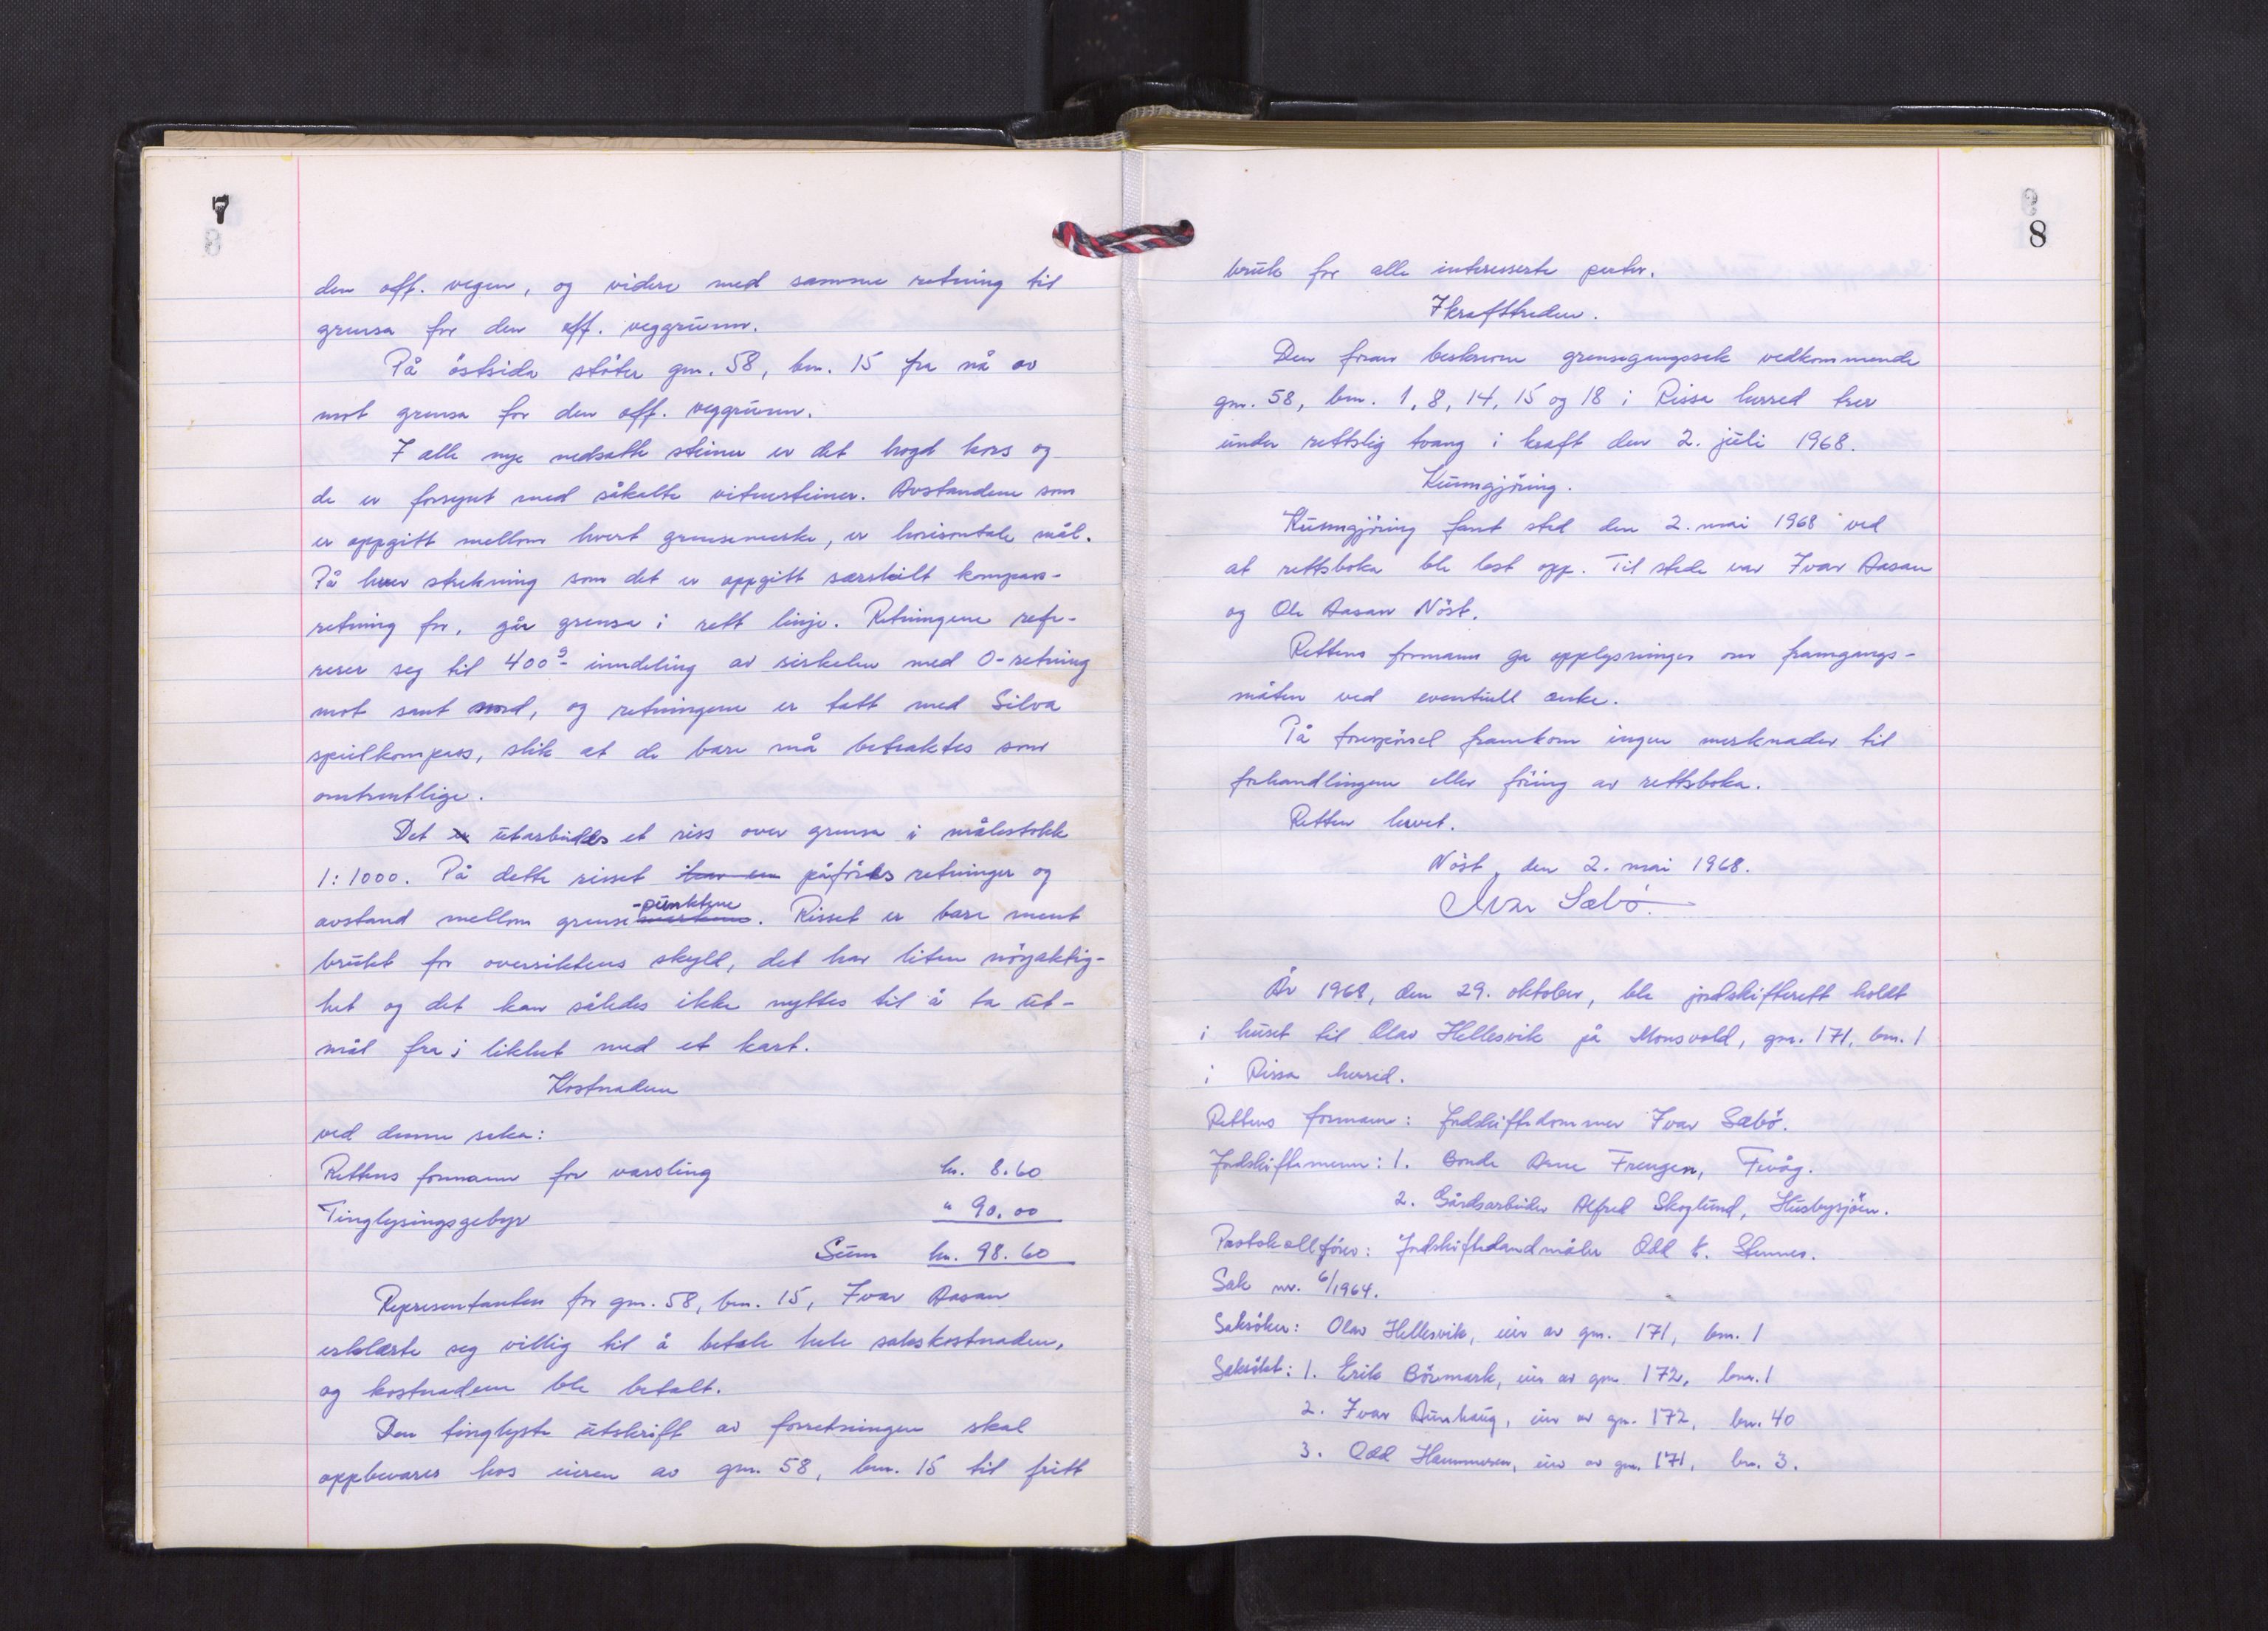 7
den off. vegen, og videre med samme retning til
grensa for den off. veggrunn.
På östsida stöter gnr. 58, bnr. 15 fra nå av
mot grensa for den off. veggrunn.
I alle nye nedsatte steiner er det hogd kors og
de er forsynt med såkalte vitnesteiner. Avstandene som
er oppgitt mellom hvert grensemerke, er horisontale mål.
På hver strekning som det er oppgitt særskilt kompass-
retning for, går grensa i rett linje. Retningene refe-
rerer seg til 400g- inndeling av sirkelen med 0-retning
mot sant nord, og retningene er tatt med Silva
speilkompass, slik at de bare må betraktes som
omtrentlige.
Det er utarbeides et riss over grensa i målestokk
1:1000. På dette risset påföres retninger og
-punktene
avstand mellom grense merkene. Risset er bare ment
brukt for oversiktens skyld, det har liten nöyaktig-
het og det kan således ikke nyttes til å ta ut-
mål fra i likhet med et kart.
Kostnadene
ved denne saka:
Rettens formann for varsling kr. 8.60
Tinglysingsgebyr " 90.00
Sum kr. 98.60
Representanten for gnr. 58, bnr. 15, Ivar Aasan
erklærte seg villig til å betale hele sakskostnaden,
og kostnadene ble betalt.
Den tinglyste utskrift av forretningen skal
oppbevares hos eieren av gnr. 58, bnr. 15 til fritt
8
bruk for alle interesserte parter.
Ikrafttreden.
Den foran beskrevne grensegangssak vedkommende
gnr. 58, bnr. 1, 8, 14, 15 og 18 i Rissa herred trer
under rettslig tvang i kraft den 2. juli 1968.
Kunngjöring.
Kunngjöring fant sted den 2. mai 1968 ved
at rettsboka ble lest opp. Til stede var Ivar Aasan
og Ole Aasan Nöst.
Rettens formann ga opplysninger om framgangs-
måten ved eventuell anke.
På forespörsel framkom ingen merknader til
forhandlingene eller föring av rettsboka.
Retten hevet.
Nöst, den 2. mai 1968.
Ivar Sæbö.
År 1968, den 29. oktober, ble jordskifterett holdt
i huset til Olav Hellesvik på Monsvold, gnr. 171, bnr. 1
i Rissa herred.
Rettens formann: Jordskiftedommer Ivar Sæbö.
Jordskiftemenn: 1. Bonde Arne Frengen, Fevåg.
2. Gårdsarbeider Alfred Skoglund, Husbysjöen.
Protokollförer: Jordskiftelandmåler Odd K. Stennes.
Sak nr. 6/1964.
Saksöker: Olav Hellesvik, eier av gnr. 171, bnr. 1
Saksökt: 1. Erik Börmark, eier av gnr. 172, bnr. 1
2. Ivar Aunhaug, eier av gnr. 172, bnr. 40
3. Odd Hammeren, eier av gnr. 171, bnr. 3.